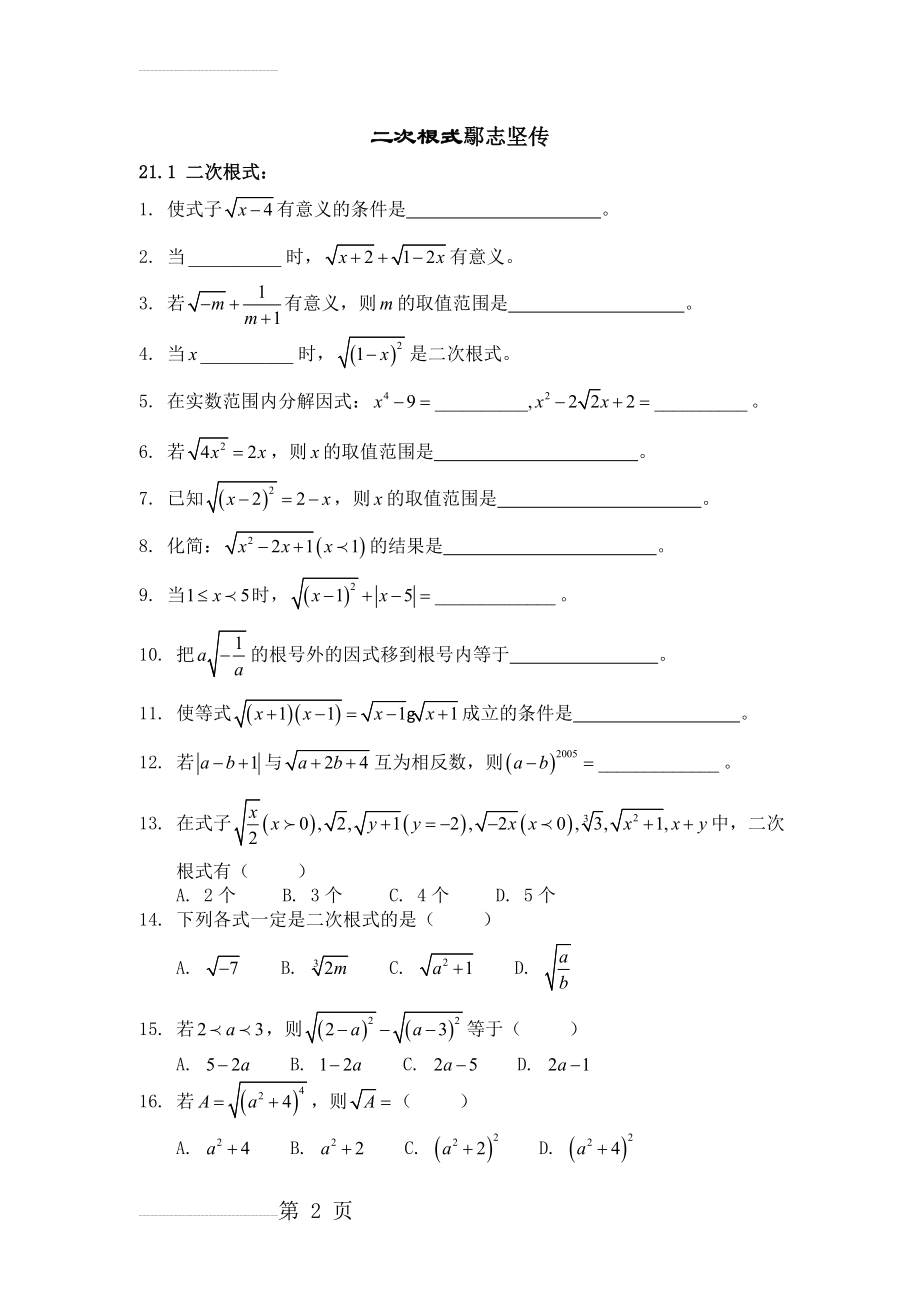 二次根式鄢志坚传
21.1 二次根式：
1. 使式子√(x−4)有意义的条件是____________________。
2. 当__________时，√(x+2)+√(1−2x)有意义。
3. 若√(−m)+1/(m+1)有意义，则m的取值范围是__________________。
4. 当x__________时，√((1−x)²)是二次根式。
5. 在实数范围内分解因式：x⁴−9=__________,x²−2√2x+2=__________。
6. 若√(4x²)=2x，则x的取值范围是_____________________。
7. 已知√((x−2)²)=2−x，则x的取值范围是_____________________。
8. 化简：√(x²−2x+1)(x≺1)的结果是______________________。
9. 当1≤x≺5时，√((x−1)²)+|x−5|=_____________。
10. 把a√(−1/a)的根号外的因式移到根号内等于_______________。
11. 使等式√((x+1)(x−1))=√(x−1)g√(x+1)成立的条件是_________________。
12. 若|a−b+1|与√(a+2b+4)互为相反数，则(a−b)²⁰⁰⁵=_____________。
13. 在式子√(x/2)(x≻0),√2,√(y+1)(y=−2),√(−2x)(x≺0),∛3,√(x²+1),x+y中，二次
根式有（ ）
A. 2个 B. 3个 C. 4个 D. 5个
14. 下列各式一定是二次根式的是（ ）
A. √(−7) B. ∛(2m) C. √(a²+1) D. √(a/b)
15. 若2≺a≺3，则√((2−a)²)−√((a−3)²)等于（ ）
A. 5−2a B. 1−2a C. 2a−5 D. 2a−1
16. 若A=√((a²+4)⁴)，则√A=（ ）
A. a²+4 B. a²+2 C. (a²+2)² D. (a²+4)²
第 2 页